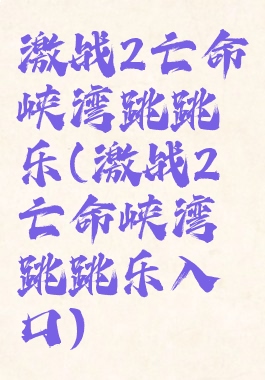 激战2亡命
峡湾跳跳
乐(激战2
亡命峡湾
跳跳乐入
口)